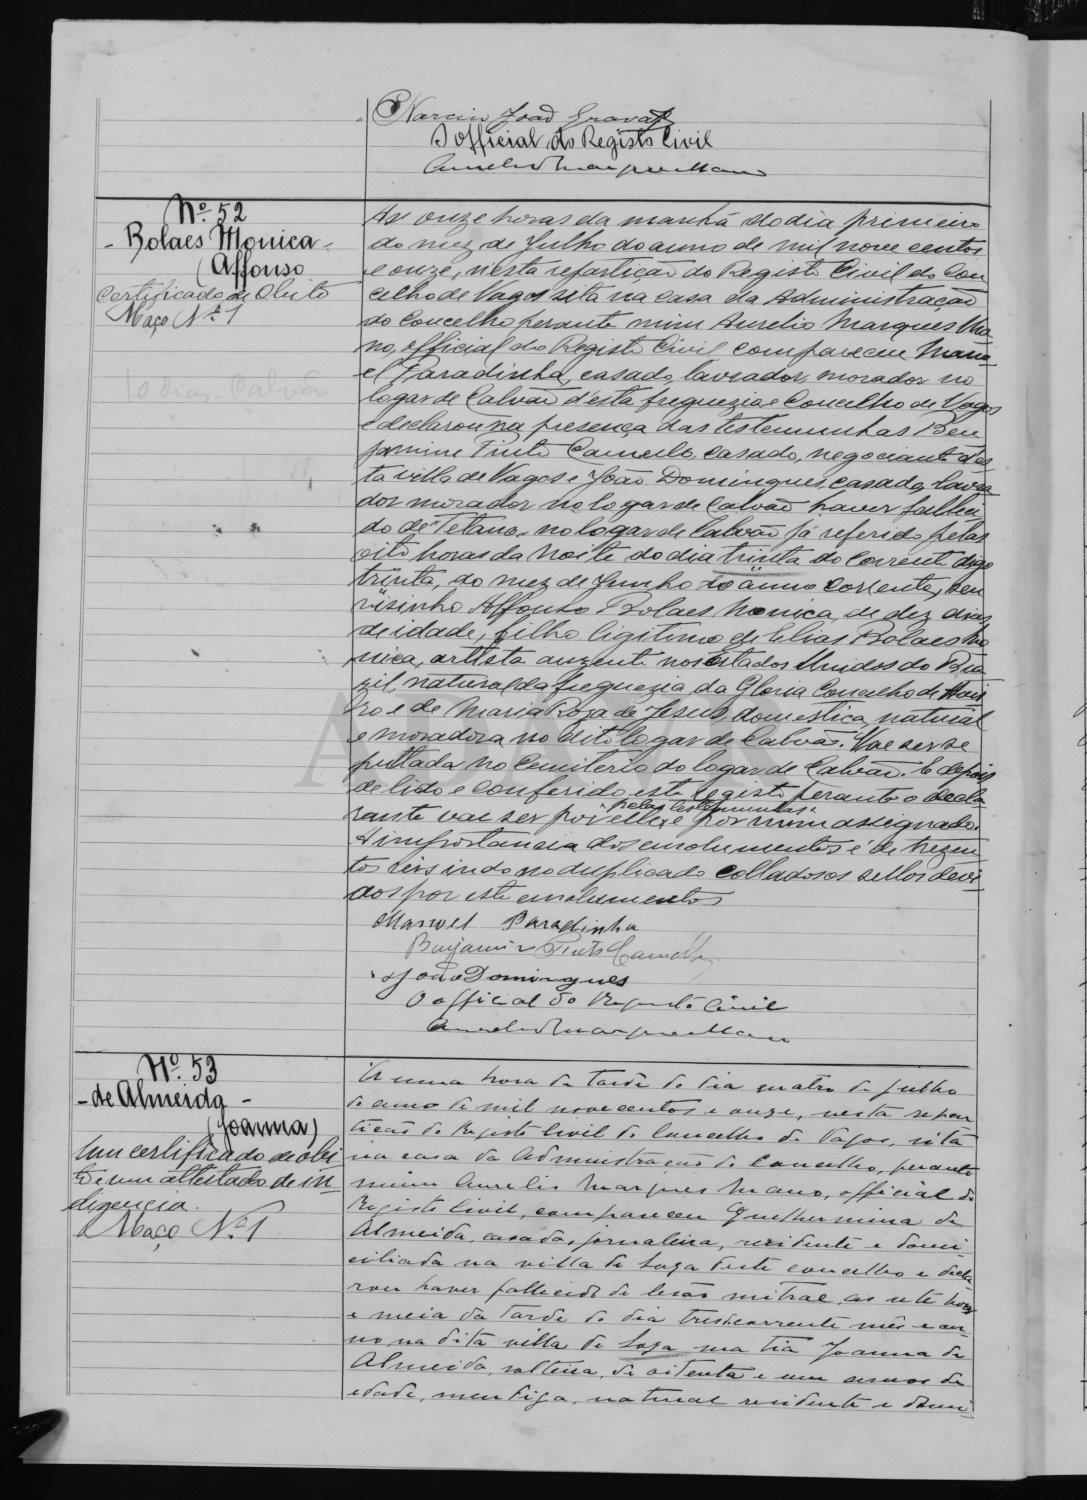 Narcizo João Grava
O official do Registo Civil
Aurelio Marques Mano
Nº 52
- Bolaes Monica -
(Affonso
Certificado de Obito
Maço Nº 1
10 dias - Calvão
As onze horas da manhã do dia primeiro
do mez de Julho do anno de mil nove centos
e onze, n'esta repartição do Registo Civil do Con
celho de Vagos sita na casa da Administração
do Concelho perante mim Aurelio Marques Ma
no, official do Registo Civil, compareceu Manu
el Paradinha, casado, lavrador, morador no
logar de Calvão d'esta freguezia e Concelho de Vagos
e declarou na presença das testemunhas Ben
jamim Pinto Camello, casado, negociante d'es
ta villa de Vagos e João Domingues, casado, lavra
dor morador no logar de Calvão haver falleci
do de Tetano, no logar de Calvão já referido pelas
oito horas da noite do dia trinta do corrente digo
trinta, do mez de Junho do anno corrente, seu
visinho Affonso Bolaes Monica, de dez dias
de idade, filho ligitimo de Elias Bolaes Mo
nica, artista auzente nos Estados Unidos do Bra
zil, natural da freguezia da Gloria Concelho de Avei
ro e de Maria Roza de Jesus, domestica, natural
e moradora no dito logar de Calvão. Vae ser se
pultada no Cemiterio do logar de Calvão. E depois
de lido e conferido este registo perante o decla
pelas testemunhas
rante vae ser por elle, e por mim assignado.
A importancia dos emolumentos é de trezen
tos reis indo no duplicado collados os sellos devi
dos por este emolumento
Manoel Paradinha
Benjamin Pinto Camello
João Domingues
O official do Registo Civil
Aurelio Marques Mano
Nº 53
- de Almeida -
(Joanna)
Um certificado de obi
to e um attestado de in
digencia.
Maço Nº 1
A uma hora da tarde do dia quatro de julho
do anno de mil novecentos e onze, nesta repar
tição do Registo Civil do Concelho de Vagos, sita
na casa da Administração do Concelho, perante
mim Aurelio Marques Mano, official do
Registo Civil, compareceu Guelhermina de
Almeida, casada, jornaleira, residente e domi
ciliada na villa de Soza deste concelho e decla
rou haver fallecido de lesão mitral, as sete horas
e meia da tarde do dia tres do corrente mês e an
no, na dita villa de Soza sua tia Joanna de
Almeida, solteira, de oitenta e um annos de
edade, mendiga, natural residente e domi